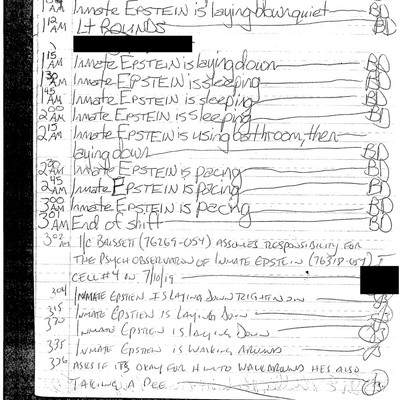 AM Inmate EPSTEIN is laying down quiet BD
1 12 AM LT ROUNDS BD
1 15 AM Inmate EPSTEIN is laying down BD
1 30 AM Inmate EPSTEIN is sleeping BD
1 45 AM Inmate EPSTEIN is sleeping BD
2 00 AM Inmate EPSTEIN is sleeping BD
2 15 AM Inmate EPSTEIN is using bathroom, then
laying down BD
2 30 AM Inmate EPSTEIN is pacing BD
2 45 AM Inmate EPSTEIN is pacing BD
3 00 AM Inmate EPSTEIN is pacing BD
3 01 AM End of shift BD
3 02 I/C BRISSETT (76269-054) ASSUMES RESPONSIBILITY FOR
THE PSYCH OBSERVATION OF INMATE EPSTEIN (76318-054) I
CELL #4 IN 7/10/19
304 INMATE EPSTIEN IS LAYING DOWN RIGHT NOW
315 INMATE EPSTIEN IS LAYING DOWN
320 INMATE EPSTIEN IS LAYING DOWN
335 INMATE EPSTIEN IS WALKING AROUND
336 ASKS IF IT'S OKAY FOR HIM TO WALK AROUND HE'S ALSO
TAKING A PEE